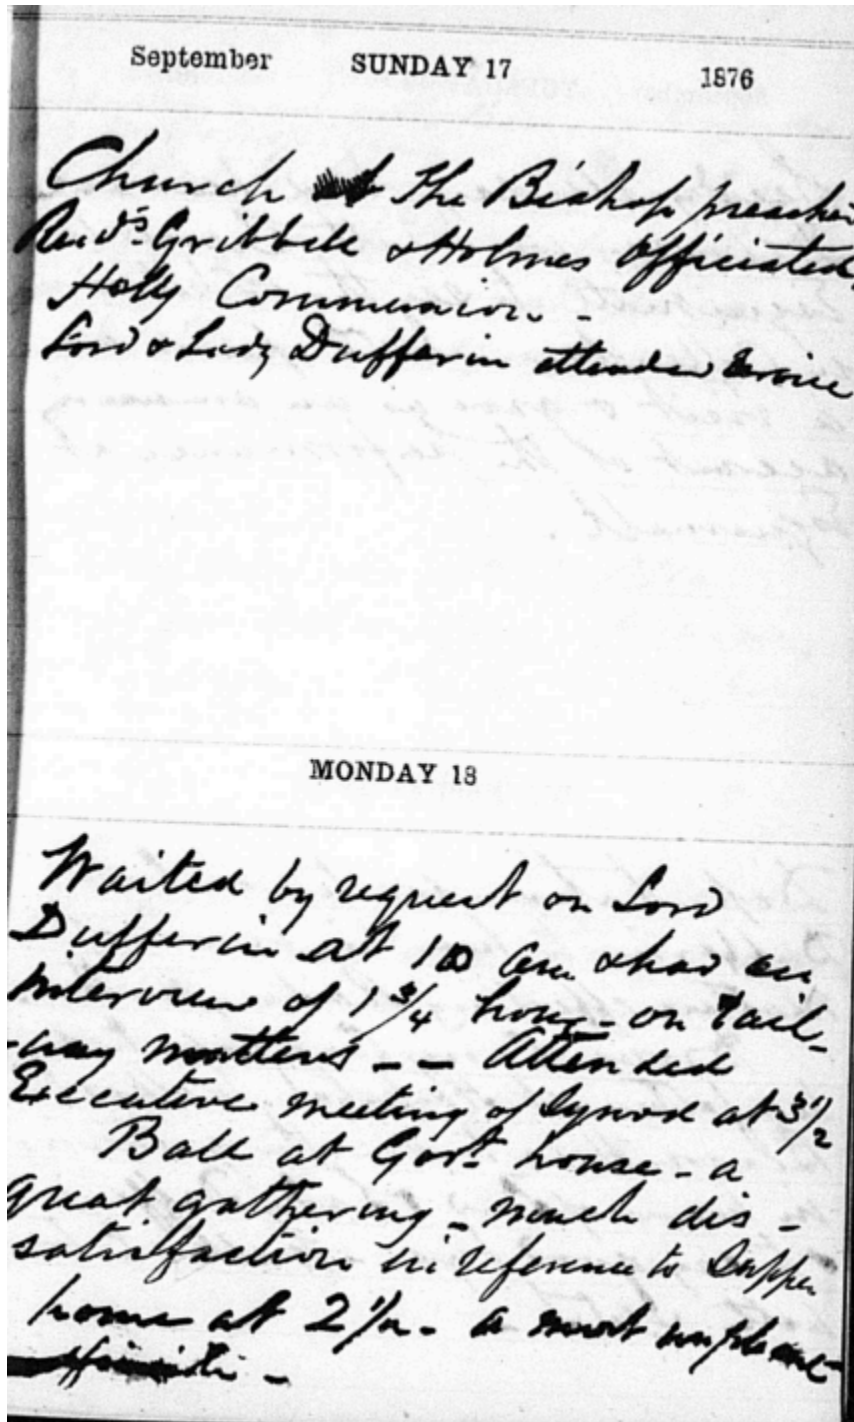 September SUNDAY 17 1876
Church The Bishop preached
Revds. Gribbell & Holmes Officiated.
Holy Communion -
Lord & Lady Dufferin attended Service
MONDAY 18
Waited by request on Lord
Dufferin at 10 am & had an
interview of 1 3/4 hours - on Rail-
-way matters - - Attended
Executive meeting of Synod at 3 1/2
Ball at Govt. house - a
great gathering - much dis-
satisfaction in reference to Supper
home at 2 1/2 - a most unpleasant